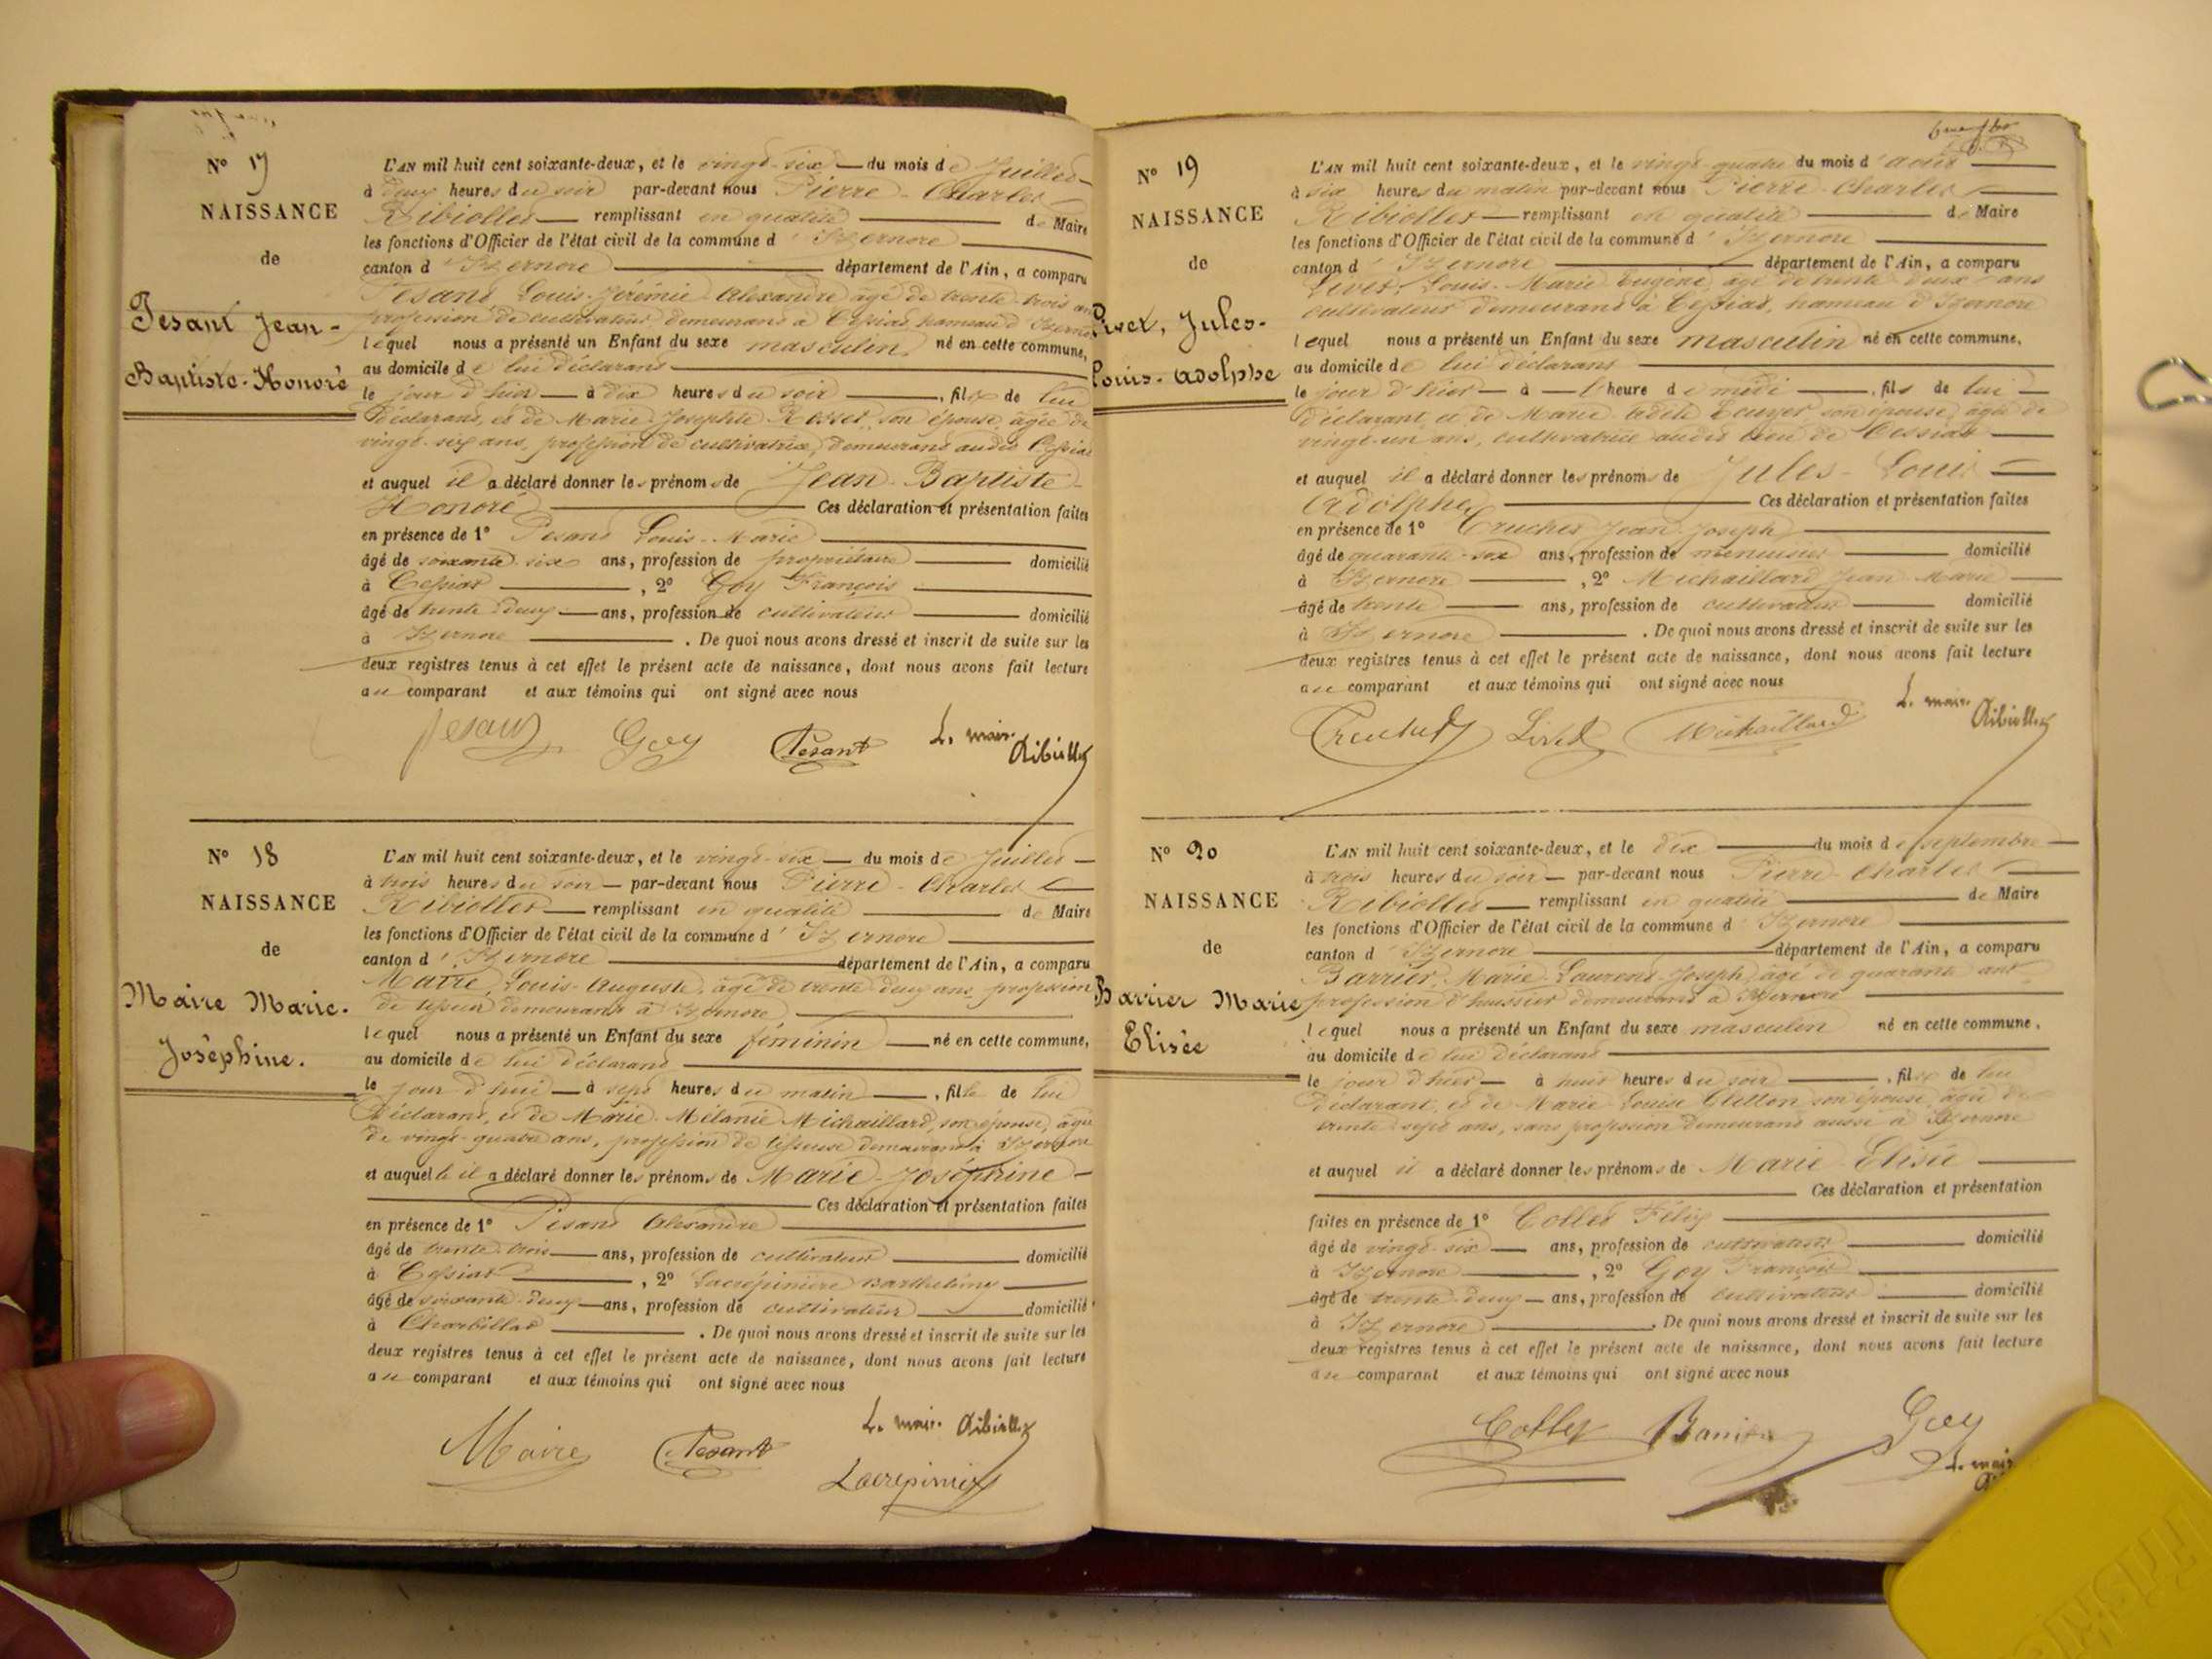 N° 17
NAISSANCE
de
Pesant Jean-
Baptiste-Honoré
L'AN mil huit cent soixante-deux, et le vingt-six du mois de Juillet
à deux heures du soir par-devant nous Pierre-Charles
Ribiollet remplissant en qualité de Maire
les fonctions d'Officier de l'état civil de la commune d'Izernore
canton d'Izernore département de l'Ain, a comparu
Pesant, Louis-Jérémie-Alexandre âgé de trente-trois ans
profession de cultivateur, demeurant à Cessiat, hameau d'Izernore
lequel nous a présenté un Enfant du sexe masculin né en cette commune,
au domicile de lui déclarant
le jour d'hier à dix heures du soir, fils de lui
déclarant, et de Marie-Josephte Rosset, son épouse, âgée de
vingt-six ans, profession de cultivatrice, demeurant audit Cessiat
et auquel il a déclaré donner les prénoms de Jean-Baptiste-
Honoré Ces déclaration et présentation faites
en présence de 1° Pesant Louis-Marie
âgé de soixante-six ans, profession de propriétaire domicilié
à Cessiat, 2° Goy François
âgé de trente-deux ans, profession de cultivateur domicilié
à Izernore. De quoi nous avons dressé et inscrit de suite sur les
deux registres tenus à cet effet le présent acte de naissance, dont nous avons fait lecture
au comparant et aux témoins qui ont signé avec nous
Pesant Goy Pesant L. maire Ribiollet
N° 18
NAISSANCE
de
Maire Marie-
Joséphine.
L'AN mil huit cent soixante-deux, et le vingt-six du mois de Juillet
à trois heures du soir par-devant nous Pierre-Charles
Ribiollet remplissant en qualité de Maire
les fonctions d'Officier de l'état civil de la commune d'Izernore
canton d'Izernore département de l'Ain, a comparu
Maire, Louis-Auguste, âgé de trente-deux ans, profession
de tisseur demeurant à Izernore
lequel nous a présenté un Enfant du sexe féminin né en cette commune,
au domicile de lui déclarant
le jour d'hui à sept heures du matin, fille de lui
déclarant, et de Marie-Mélanie Michaillard, son épouse, âgée
de vingt-quatre ans, profession de tisseuse demeurant à Izernore
et auquelle il a déclaré donner les prénoms de Marie-Joséphine
Ces déclaration et présentation faites
en présence de 1° Pesant Alexandre
âgé de trente-trois ans, profession de cultivateur domicilié
à Cessiat, 2° Lacrépinière Barthélémy
âgé de soixante-deux ans, profession de cultivateur domicilié
à Charbillat. De quoi nous avons dressé et inscrit de suite sur les
deux registres tenus à cet effet le présent acte de naissance, dont nous avons fait lecture
au comparant et aux témoins qui ont signé avec nous
Maire Pesant L. maire Ribiollet
N° 19
NAISSANCE
de
Livet, Jules-
Louis-Adolphe
L'AN mil huit cent soixante-deux, et le vingt-quatre du mois d'août
à six heures du matin par-devant nous Pierre-Charles
Ribiollet remplissant en qualité de Maire
les fonctions d'Officier de l'état civil de la commune d'Izernore
canton d'Izernore département de l'Ain, a comparu
Livet, Louis-Marie-Eugène, âgé de trente-deux ans
cultivateur demeurant à Cessiat, hameau d'Izernore
lequel nous a présenté un Enfant du sexe masculin né en cette commune,
au domicile de lui déclarant
le jour d'hier à l'heure de midi, fils de lui
déclarant, et de Marie-Adèle Ecuyer son épouse, âgée de
vingt-un ans, cultivatrice audit lieu de Cessiat
et auquel il a déclaré donner les prénoms de Jules-Louis
Adolphe Ces déclaration et présentation faites
en présence de 1° Truchet Jean-Joseph
âgé de quarante-six ans, profession de menuisier domicilié
à Izernore, 2° Michaillard Jean-Marie
âgé de trente ans, profession de cultivateur domicilié
à Izernore. De quoi nous avons dressé et inscrit de suite sur les
deux registres tenus à cet effet le présent acte de naissance, dont nous avons fait lecture
au comparant et aux témoins qui ont signé avec nous
Truchet Livet Michaillard L. maire Ribiollet
N° 20
NAISSANCE
de
Barrier Marie
Elisée
L'AN mil huit cent soixante-deux, et le dix du mois de septembre
à trois heures du soir par-devant nous Pierre-Charles
Ribiollet remplissant en qualité de Maire
les fonctions d'Officier de l'état civil de la commune d'Izernore
canton d'Izernore département de l'Ain, a comparu
Barrier, Marie-Laurent-Joseph, âgé de quarante ans
profession d'huissier demeurant à Izernore
lequel nous a présenté un Enfant du sexe masculin né en cette commune,
au domicile de lui déclarant
le jour d'hier à huit heures du soir, fils de lui
déclarant, et de Marie-Louise Gletton son épouse, âgée de
trente-sept ans, sans profession demeurant aussi à Izernore
et auquel il a déclaré donner les prénoms de Marie-Elisée
Ces déclaration et présentation
faites en présence de 1° Collet Félix
âgé de vingt-six ans, profession de cultivateur domicilié
à Izernore, 2° Goy François
âgé de trente-deux ans, profession de cultivateur domicilié
à Izernore. De quoi nous avons dressé et inscrit de suite sur les
deux registres tenus à cet effet le présent acte de naissance, dont nous avons fait lecture
au comparant et aux témoins qui ont signé avec nous
Collet Barrier Goy
L. maire